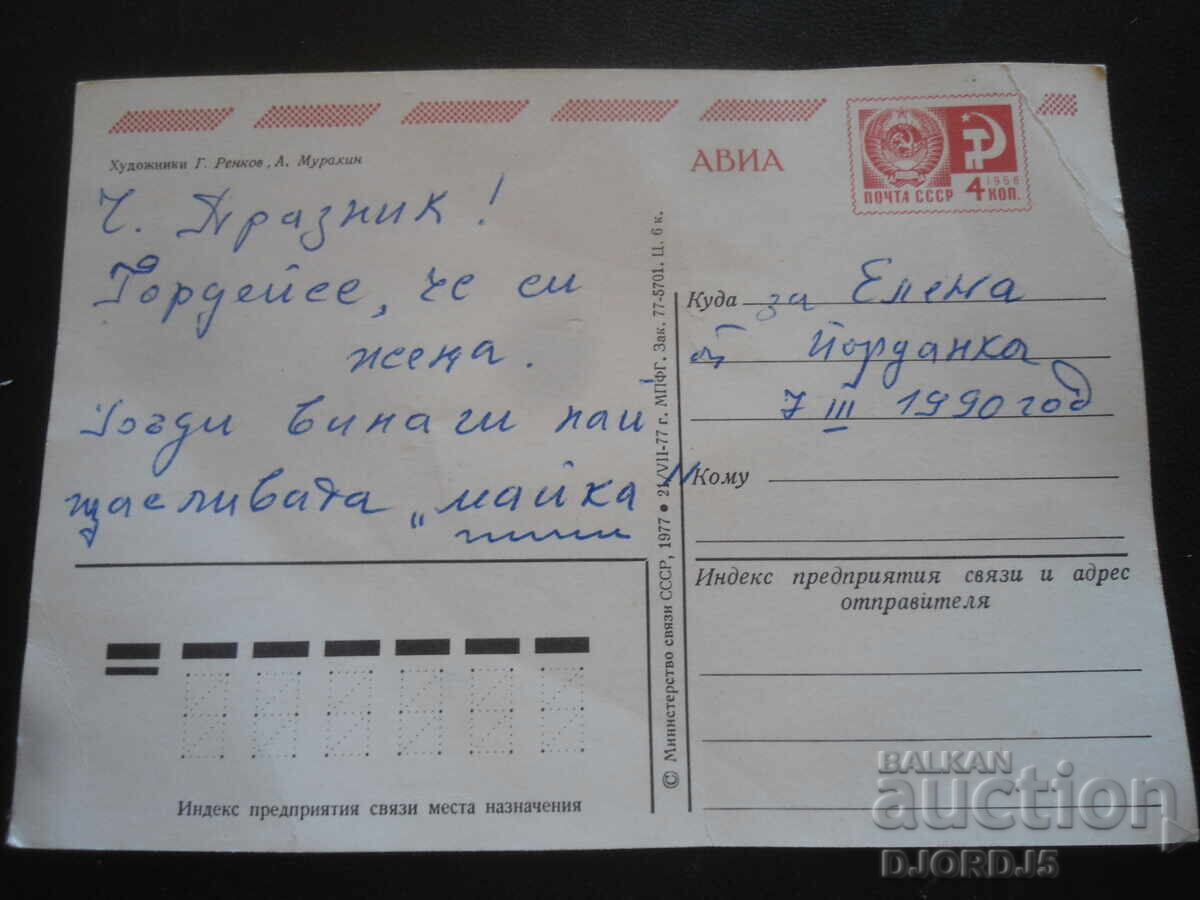 Художники Г. Ренков, А. Муракин
АВИА
1966
ПОЧТА СССР 4 КОП.
Ч. Празник!
Гордейсе, че си
жена.
Бъди винаги най
щасливата „майка"
Куда за Елена
от Йорданка
7 III 1990 год
Кому
Индекс предприятия связи и адрес
отправителя
© Министерство связи СССР, 1977 • 21/VII-77 г. МПФГ. Зак. 77-5701. Ц. 6 к.
Индекс предприятия связи места назначения
BALKAN
auction
DJORDJ5